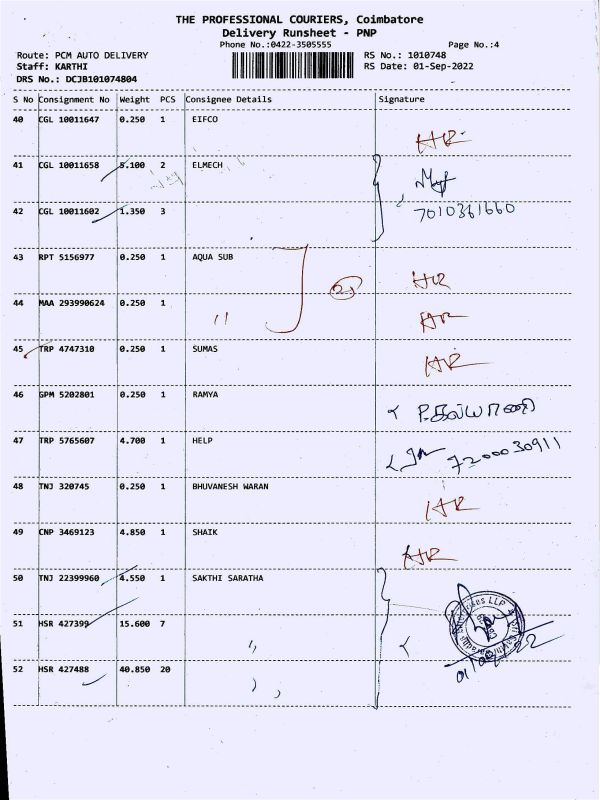 THE PROFESSIONAL COURIERS, Coimbatore
Delivery Runsheet - PNP
Phone No.:0422-3505555
Page No.:4
Route: PCM AUTO DELIVERY
RS No.: 1010748
Staff: KARTHI
RS Date: 01-Sep-2022
DRS No.: DCJB101074804
S No Consignment No Weight PCS Consignee Details Signature
40 CGL 10011647 0.250 1 EIFCO
HR
41 CGL 10011658 5.100 2 ELMECH
42 CGL 10011602 1.350 3
7010361660
43 RPT 5156977 0.250 1 AQUA SUB
HR
44 MAA 293990624 0.250 1 11
HR
45 TRP 4747310 0.250 1 SUMAS
HR
46 GPM 5202801 0.250 1 RAMYA
P.கல்யாணி
47 TRP 5765607 4.700 1 HELP
7200030911
48 TNJ 320745 0.250 1 BHUVANESH WARAN
HR
49 CNP 3469123 4.850 1 SHAIK
HR
50 TNJ 22399960 4.550 1 SAKTHI SARATHA
51 HSR 427399 15.600 7 "
52 HSR 427488 40.850 20 "